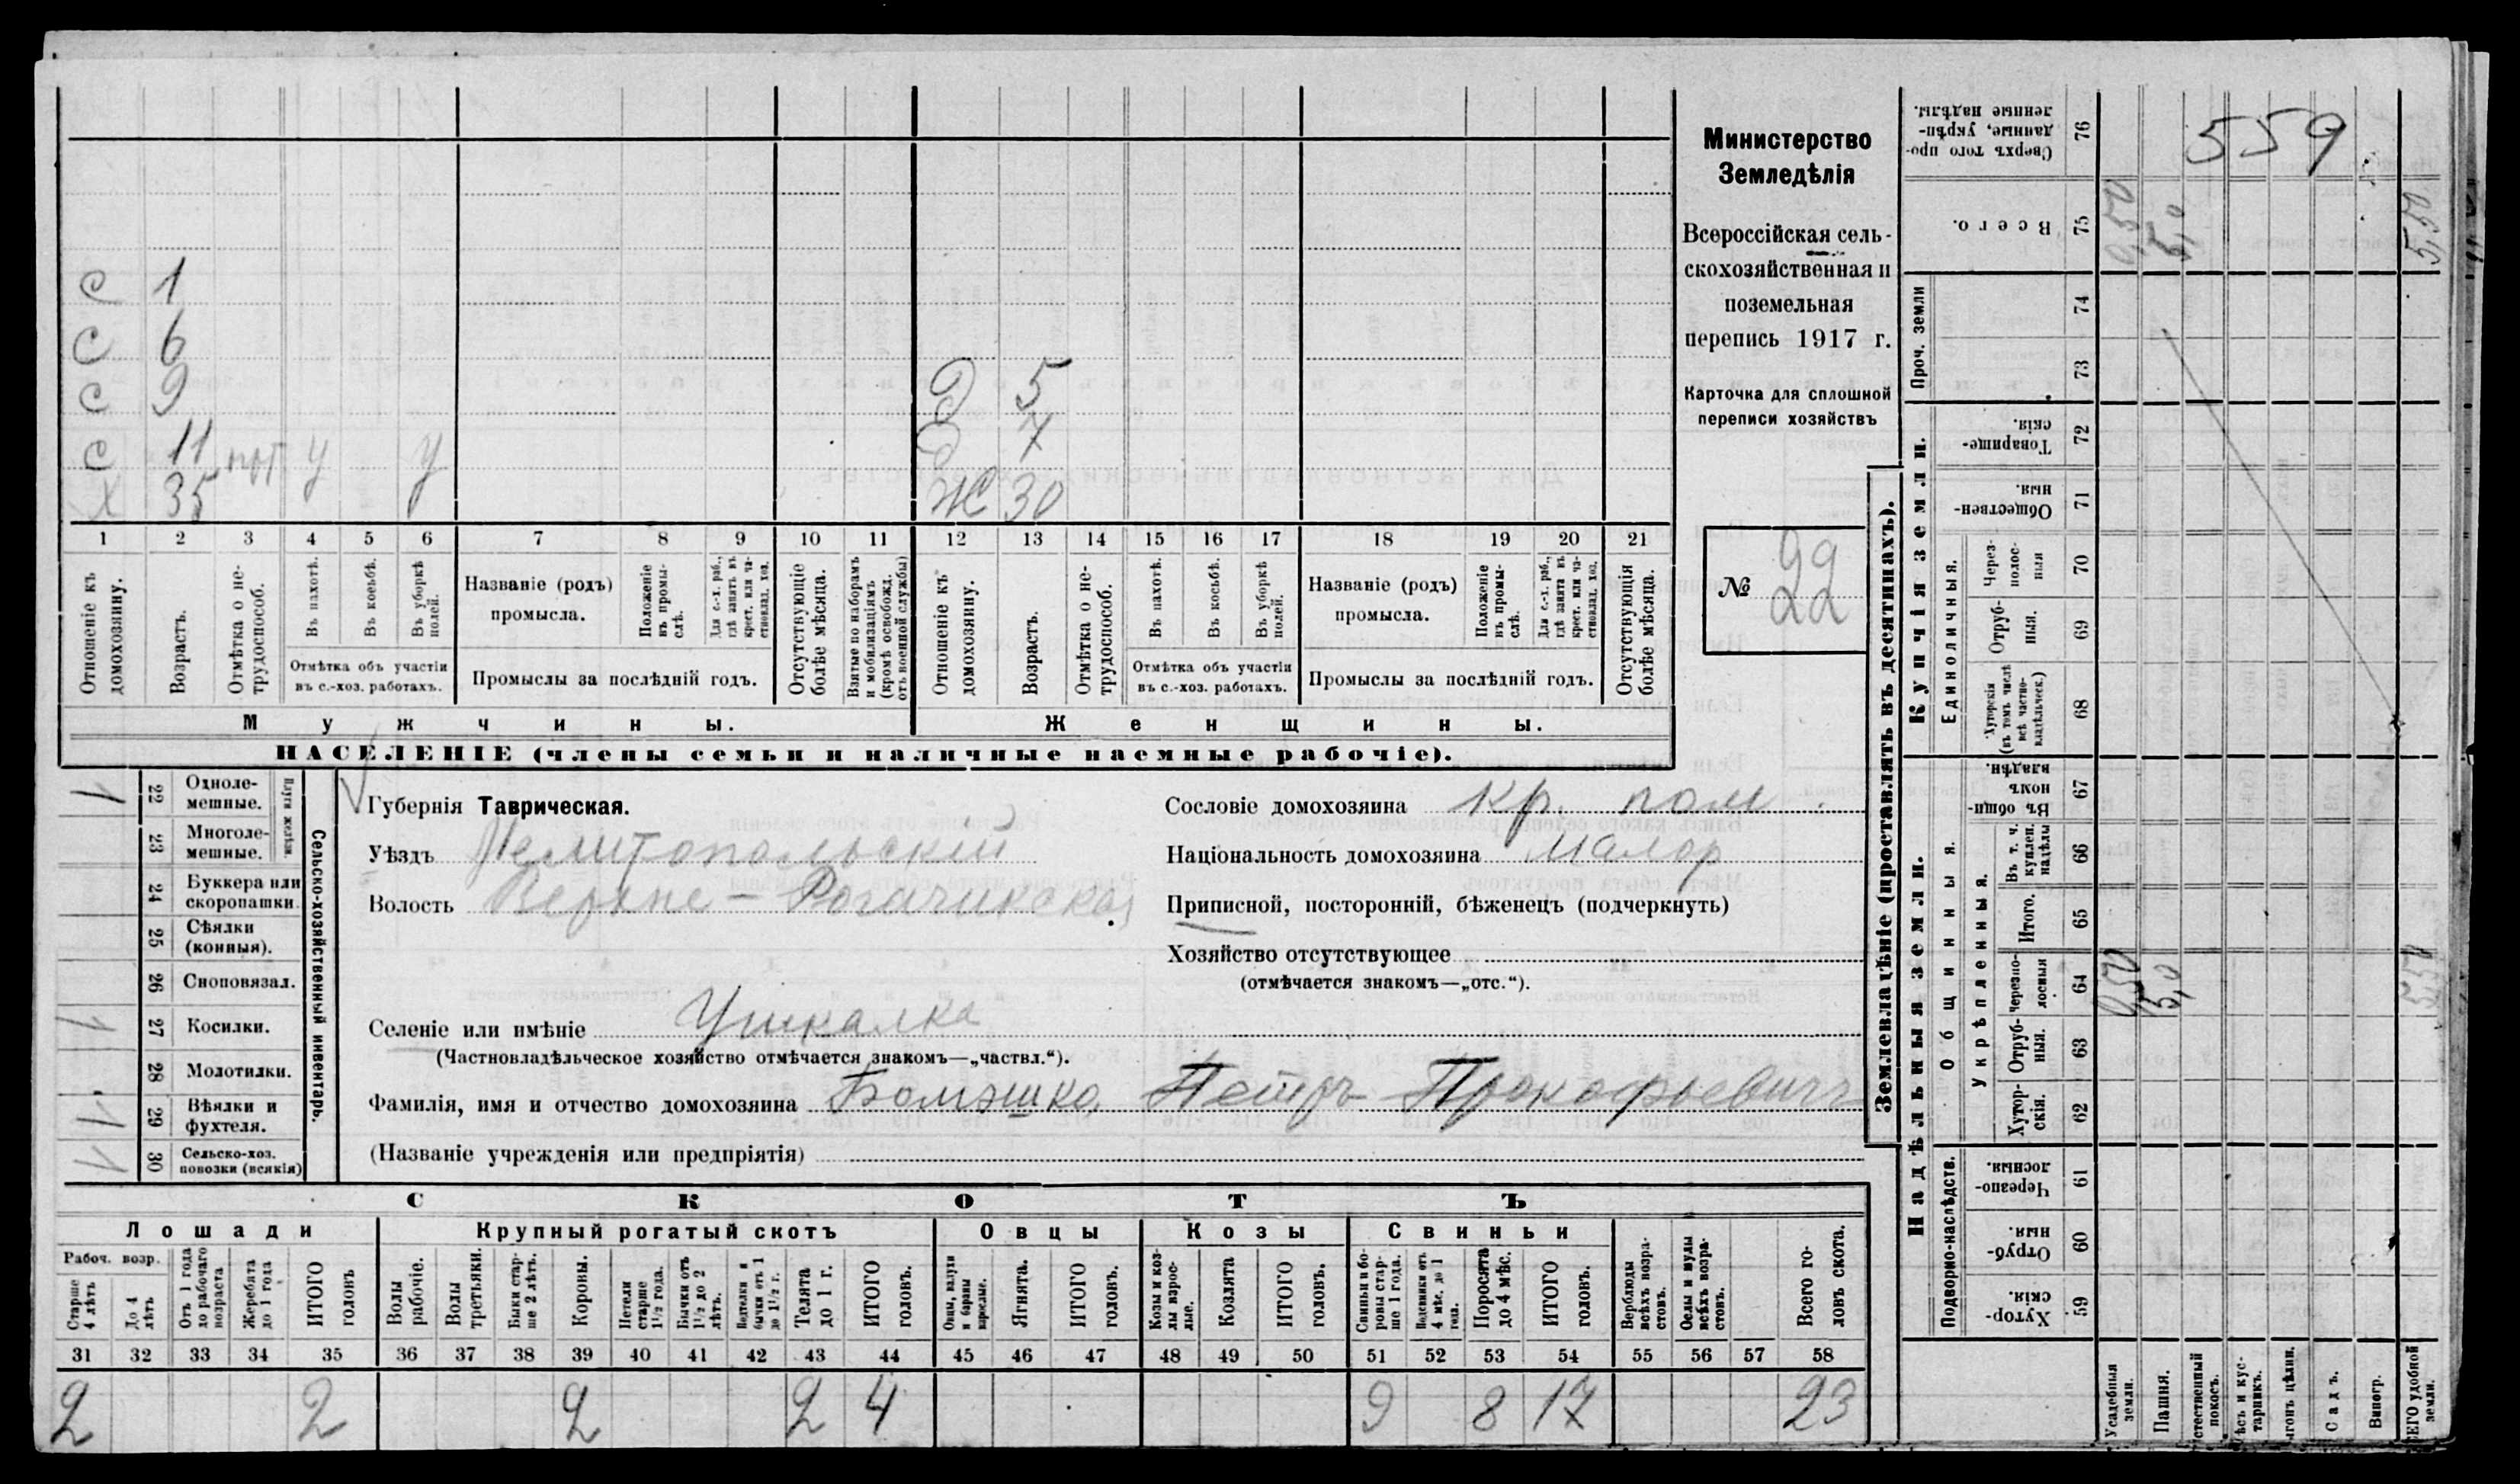 Министерство
Земледѣлія
Всероссійская сель-
скохозяйственная и
поземельная
перепись 1917 г.
Карточка для сплошной
переписи хозяйствъ
№ 22
559
с 1
с 6
с 9
с 11
х 35
Д 5
Д 7
Ж 30
1 2 3 4 5 6 7 8 9 10 11 12 13 14 15 16 17 18 19 20 21
Отношеніе къ домохозяину.
Возрастъ.
Отмѣтка о не-трудоспособ.
Въ пахотѣ.
Въ косьбѣ.
Въ уборкѣ полей.
Отмѣтка объ участіи
въ с.-хоз. работахъ.
Названіе (родъ)
промысла.
Положеніе въ промы-слѣ.
Для с.-х. раб., гдѣ занятъ въ крест. или ча-стновлад. хоз.
Промыслы за послѣдній годъ.
Отсутствующіе болѣе мѣсяца.
Взятые по наборамъ и мобилизаціямъ (кромѣ освобожд. отъ военной службы)
Отношеніе къ домохозяину.
Возрастъ.
Отмѣтка о не-трудоспособ.
Въ пахотѣ.
Въ косьбѣ.
Въ уборкѣ полей.
Отмѣтка объ участіи
въ с.-хоз. работахъ.
Названіе (родъ)
промысла.
Положеніе въ промы-слѣ.
Для с.-х. раб., гдѣ занятъ въ крест. или ча-стновлад. хоз.
Промыслы за послѣдній годъ.
Отсутствующія болѣе мѣсяца.
Мужчины.
Женщины.
НАСЕЛЕНІЕ (члены семьи и наличные наемные рабочіе).
Сельско-хозяйственный инвентарь.
Плуги желѣзн.
1 22 Одноле-мешные.
23 Многоле-мешные.
24 Буккера или скоропашки.
25 Сѣялки (конныя).
26 Сноповязал.
1 27 Косилки.
28 Молотилки.
1 29 Вѣялки и фухтеля.
1 30 Сельско-хоз. повозки (всякія)
Губернія Таврическая.
Уѣздъ Мелитопольскій
Волость Верхне-Рогачикская
Селеніе или имѣніе Ушкалка
(Частновладѣльческое хозяйство отмѣчается знакомъ—„частвл.“).
Фамилія, имя и отчество домохозяина Петръ Прокофьевичъ
(Названіе учрежденія или предпріятія)
Сословіе домохозяина кр.
Національность домохозяина Малор
Приписной, посторонній, бѣженецъ (подчеркнуть)
Хозяйство отсутствующее
(отмѣчается знакомъ—„отс.“).
СКОТЪ
Лошади
Крупный рогатый скотъ
Овцы
Козы
Свиньи
Рабоч. возр.
Старше 4 лѣтъ
До 4 лѣтъ
Отъ 1 года до рабочаго возраста
Жеребята до 1 года
ИТОГО головъ
Волы рабочіе.
Волы третьяки.
Быки стар-ше 2 лѣтъ.
Коровы.
Нетели старше 1½ года.
Бычки отъ 1½ до 2 лѣтъ.
Подтелки и бычки отъ 1 до 1½ г.
Телята до 1 г.
ИТОГО головъ.
Овцы, валухи и бараны взрослые.
Ягнята.
ИТОГО головъ.
Козы и коз-лы взрос-лые.
Козлята
ИТОГО головъ.
Свиньи и бо-ровы стар-ше 1 года.
Подсвинки отъ 4 мѣс. до 1 года.
Поросята до 4 мѣс.
ИТОГО головъ.
Верблюды всѣхъ возра-стовъ.
Ослы и мулы всѣхъ возра-стовъ.
Всего го-ловъ скота.
31 32 33 34 35 36 37 38 39 40 41 42 43 44 45 46 47 48 49 50 51 52 53 54 55 56 57 58
2 2 2 2 4 9 8 17 23
Землевладѣніе (проставлять въ десятинахъ).
Купчія земли.
Надѣльныя земли.
Сверхъ того про-данные, укрѣп-ленные надѣлы. 76
Всего. 75 0,50 5,0 5,50
Проч. земли
74
73
Товарище-скія. 72
Обществен-ныя. 71
Единоличныя.
Через-полос-ныя 70
Отруб-ныя. 69
Хуторскія (въ томъ числѣ всѣ частно-владѣльческ.) 68
Общинныя.
Въ общи-номъ владѣн. 67
Укрѣпленныя.
Въ т. ч. куплен. надѣлы 66
Итого. 65
Черезпо-лосныя 64 0,50 5,0 5,50
Отруб-ныя. 63
Хутор-скія. 62
Подворно-наслѣдств.
Черезпо-лосныя. 61
Отруб-ныя. 60
Хутор-скія. 59
Усадебныя земли.
Пашня.
Садъ.
Виногр.